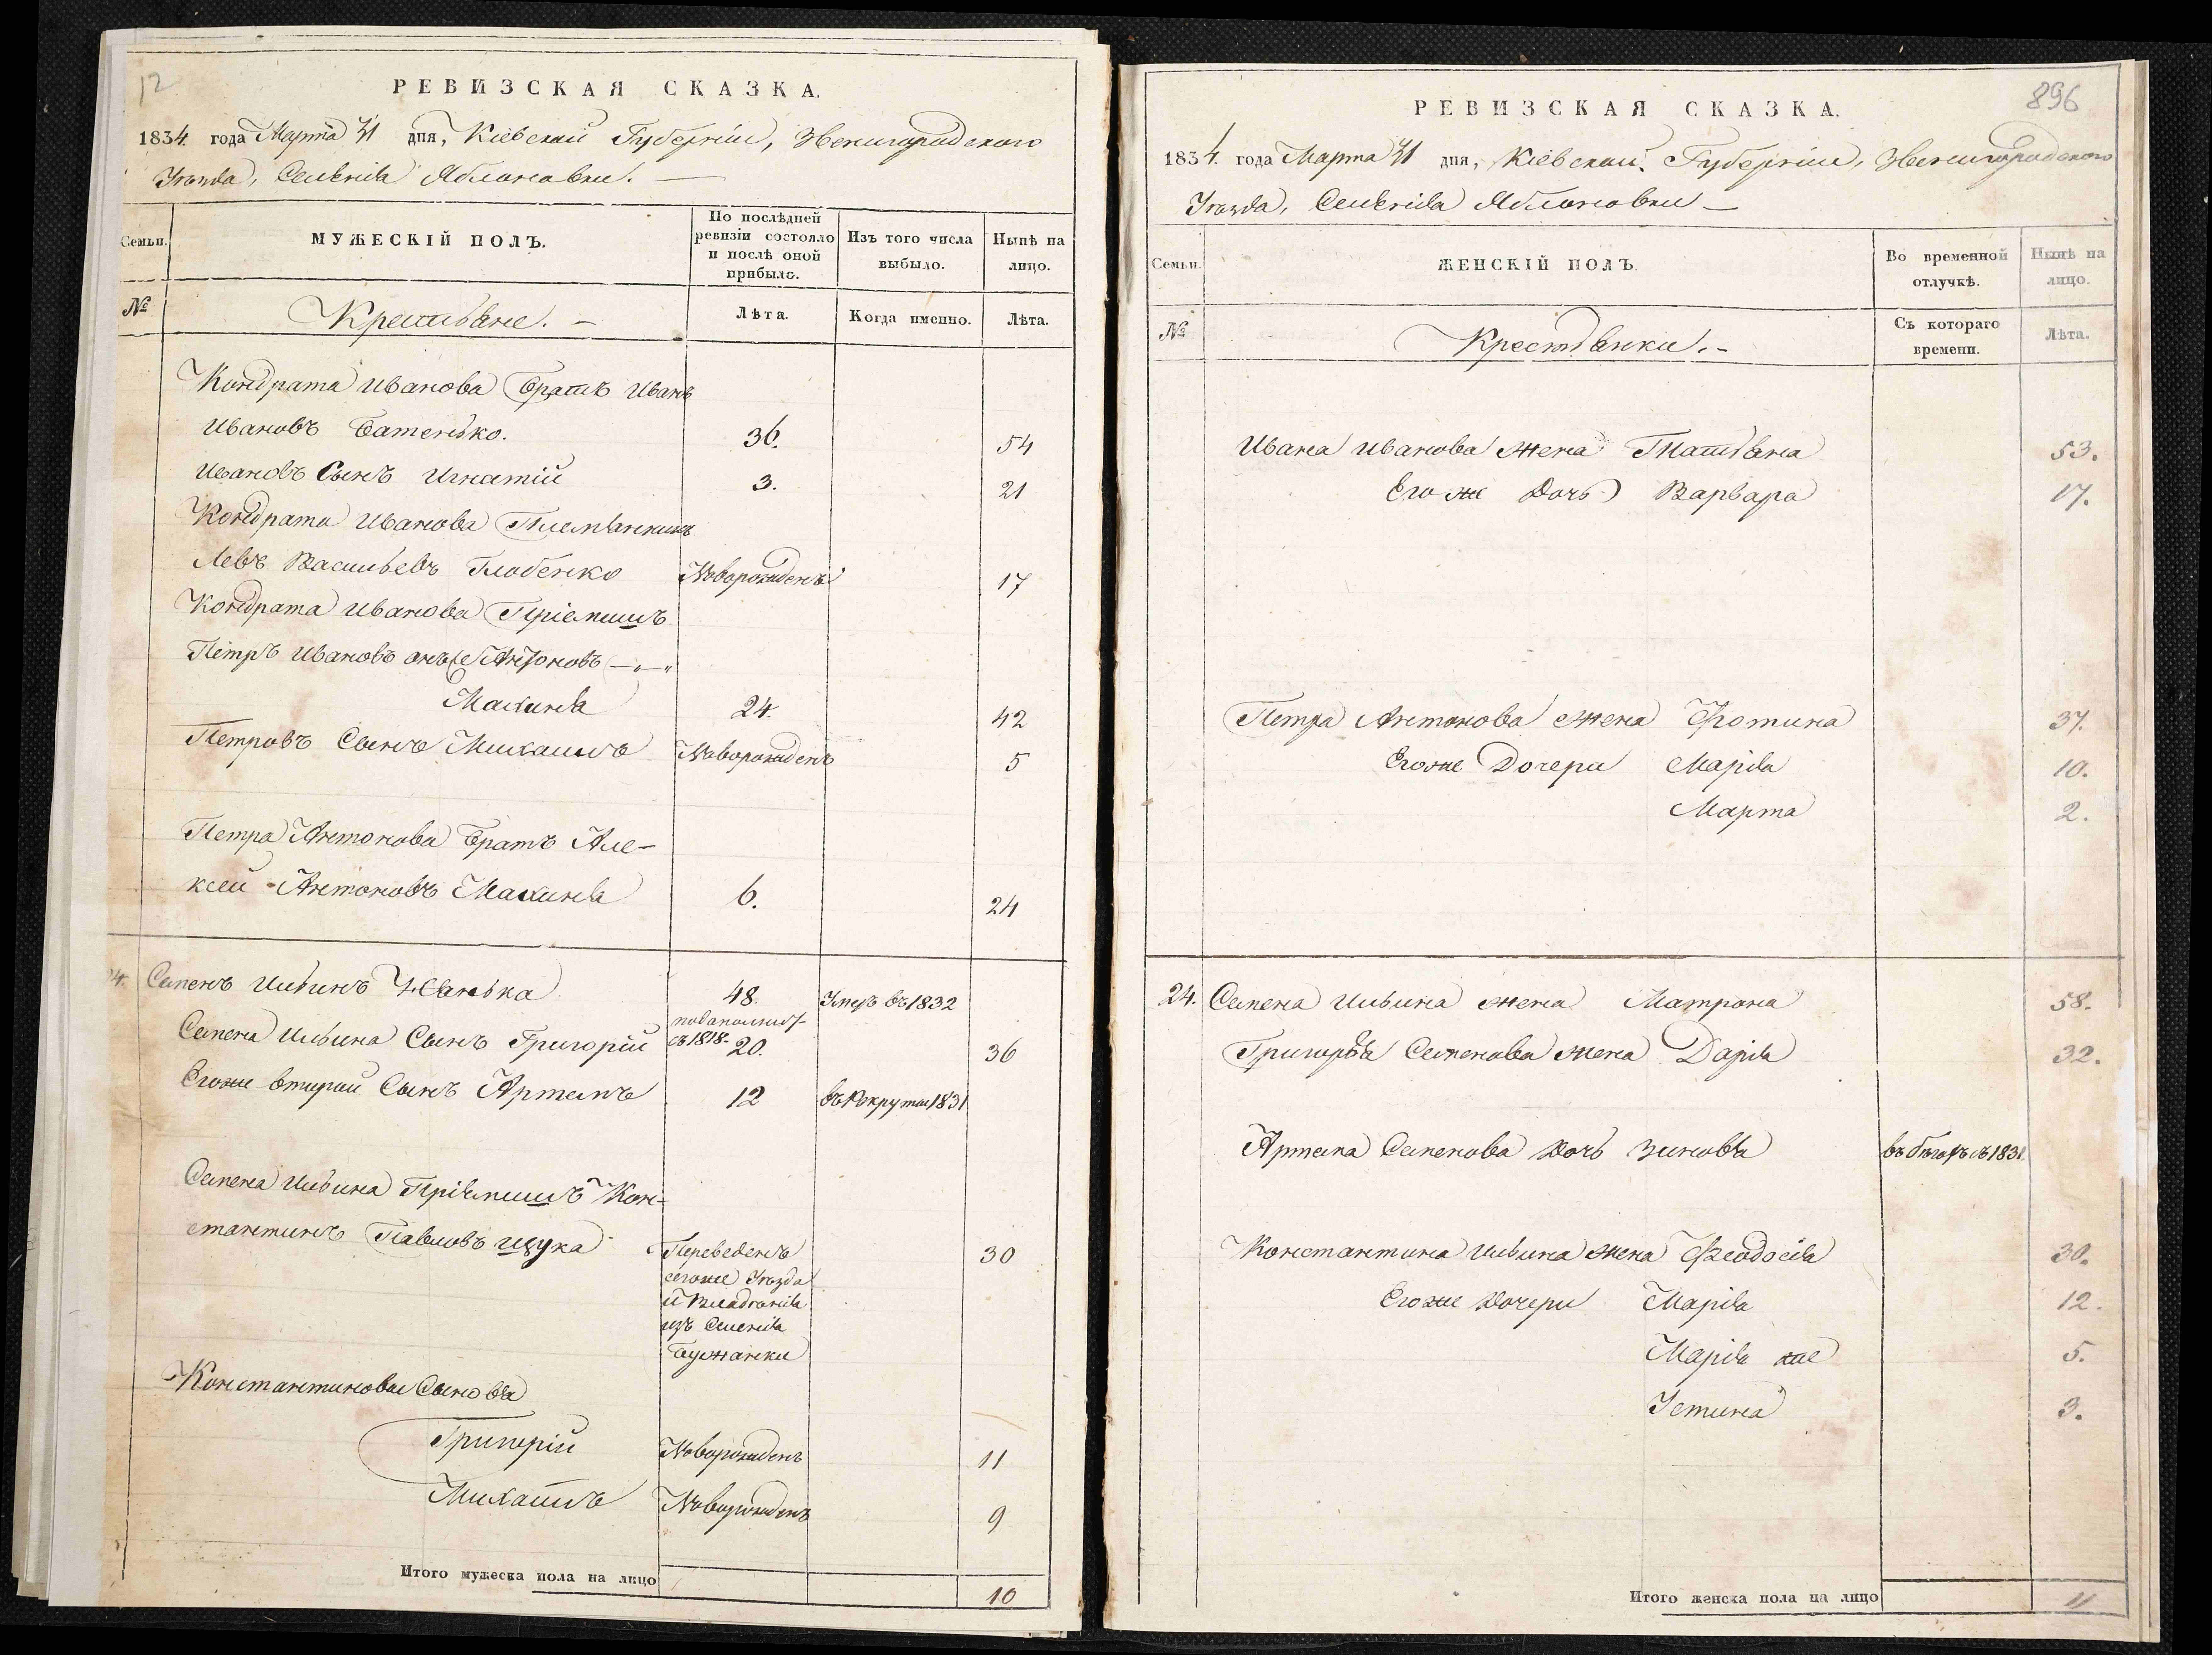 12
РЕВИЗСКАЯ СКАЗКА.
1834. года Марта 31 дня, Кіевской Губерніи, Звенигородского
Уѣзда, Селенія Яблоновки.
Семьи.
МУЖЕСКІЙ ПОЛЪ.
По послѣдней
ревизіи состояло
и послѣ оной
прибыло.
Изъ того числа
выбыло.
Нынѣ на
лицо.
№
Крестьяне.
Лѣта.
Когда именно.
Лѣта.
Кондрата Иванова Братъ Иванъ
Ивановъ Батенько. 36. 54
Ивановъ Сынъ Игнатій 3. 21
Кондрата Иванова Племянникъ
Левъ Васильевъ Глобенко Новорожденъ 17
Кондрата Иванова Пріемишъ
Петръ Ивановъ онъже Антоновъ
Махиня 24. 42
Петровъ Сынъ Михаилъ Новорожденъ 5
Петра Антонова Братъ Але-
ксей Антоновъ Махиня 6. 24
24. Семенъ Ильинъ 48. Умеръ въ 1832
Семена Ильина Сынъ Григорій съ 1818. 20. 36
Егоже вторый Сынъ Артемъ 12 въ Рекруты 1831
Семена Ильина Пріемишъ Кон-
стантинъ Павловъ Щука Переведенъ 30
сегоже Уѣзда
и Владѣнія
изъ Селенія
Бужанки
Константиновы Сыновья
Григорій Новорожденъ 11
Михаилъ Новорожденъ 9
Итого мужеска пола на лицо 10
896
РЕВИЗСКАЯ СКАЗКА.
1834. года Марта 31 дня, Кіевской Губерніи, Звенигородского
Уѣзда, Селенія Яблоновки
Семьи.
ЖЕНСКІЙ ПОЛЪ.
Во временной
отлучкѣ.
Нынѣ на
лицо.
№
Крестьянки.
Съ котораго
времени.
Лѣта.
Ивана Иванова жена Татьяна 53.
Его же Дочь Варвара 17.
Петра Антонова жена Фотина 37.
Егоже Дочери Марія 10.
Марта 2.
24. Семена Ильина жена Матрона 58.
Григорья Семенова жена Дарія 32.
Артема Семенова Дочь Зиновья въ бѣгахъ съ 1831
Константина Ильина жена Феодосія 30.
Егоже Дочери Марія 12.
Марія же 5.
Устина 3.
Итого женска пола на лицо 11